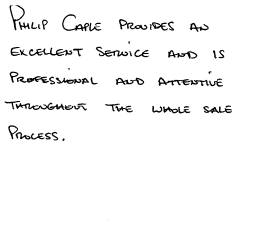 Philip Caple provides an
excellent service and is
professional and attentive
throughout the whole sale
process.